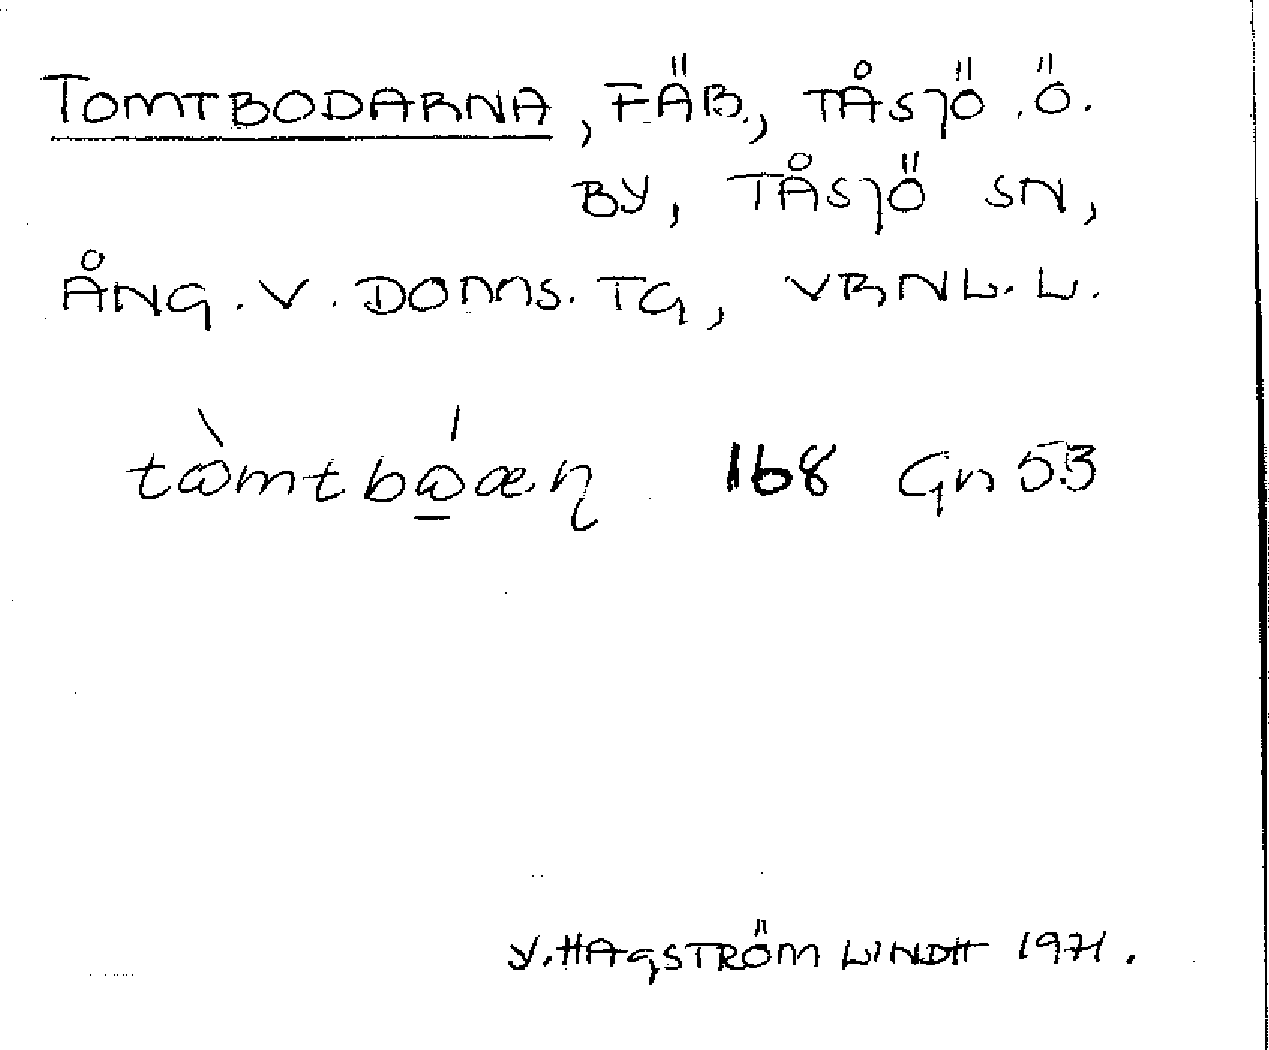 TOMTBODARNA, FÄB., TÅSJÖ .Ö.
BY, TÅSJÖ SN,
ÅNG. V. DOMS. TG, VBNL. L.
tὼmtbώ̲æɳ 168 Gn 53
Y. HAGSTRÖM LINDH 1971.